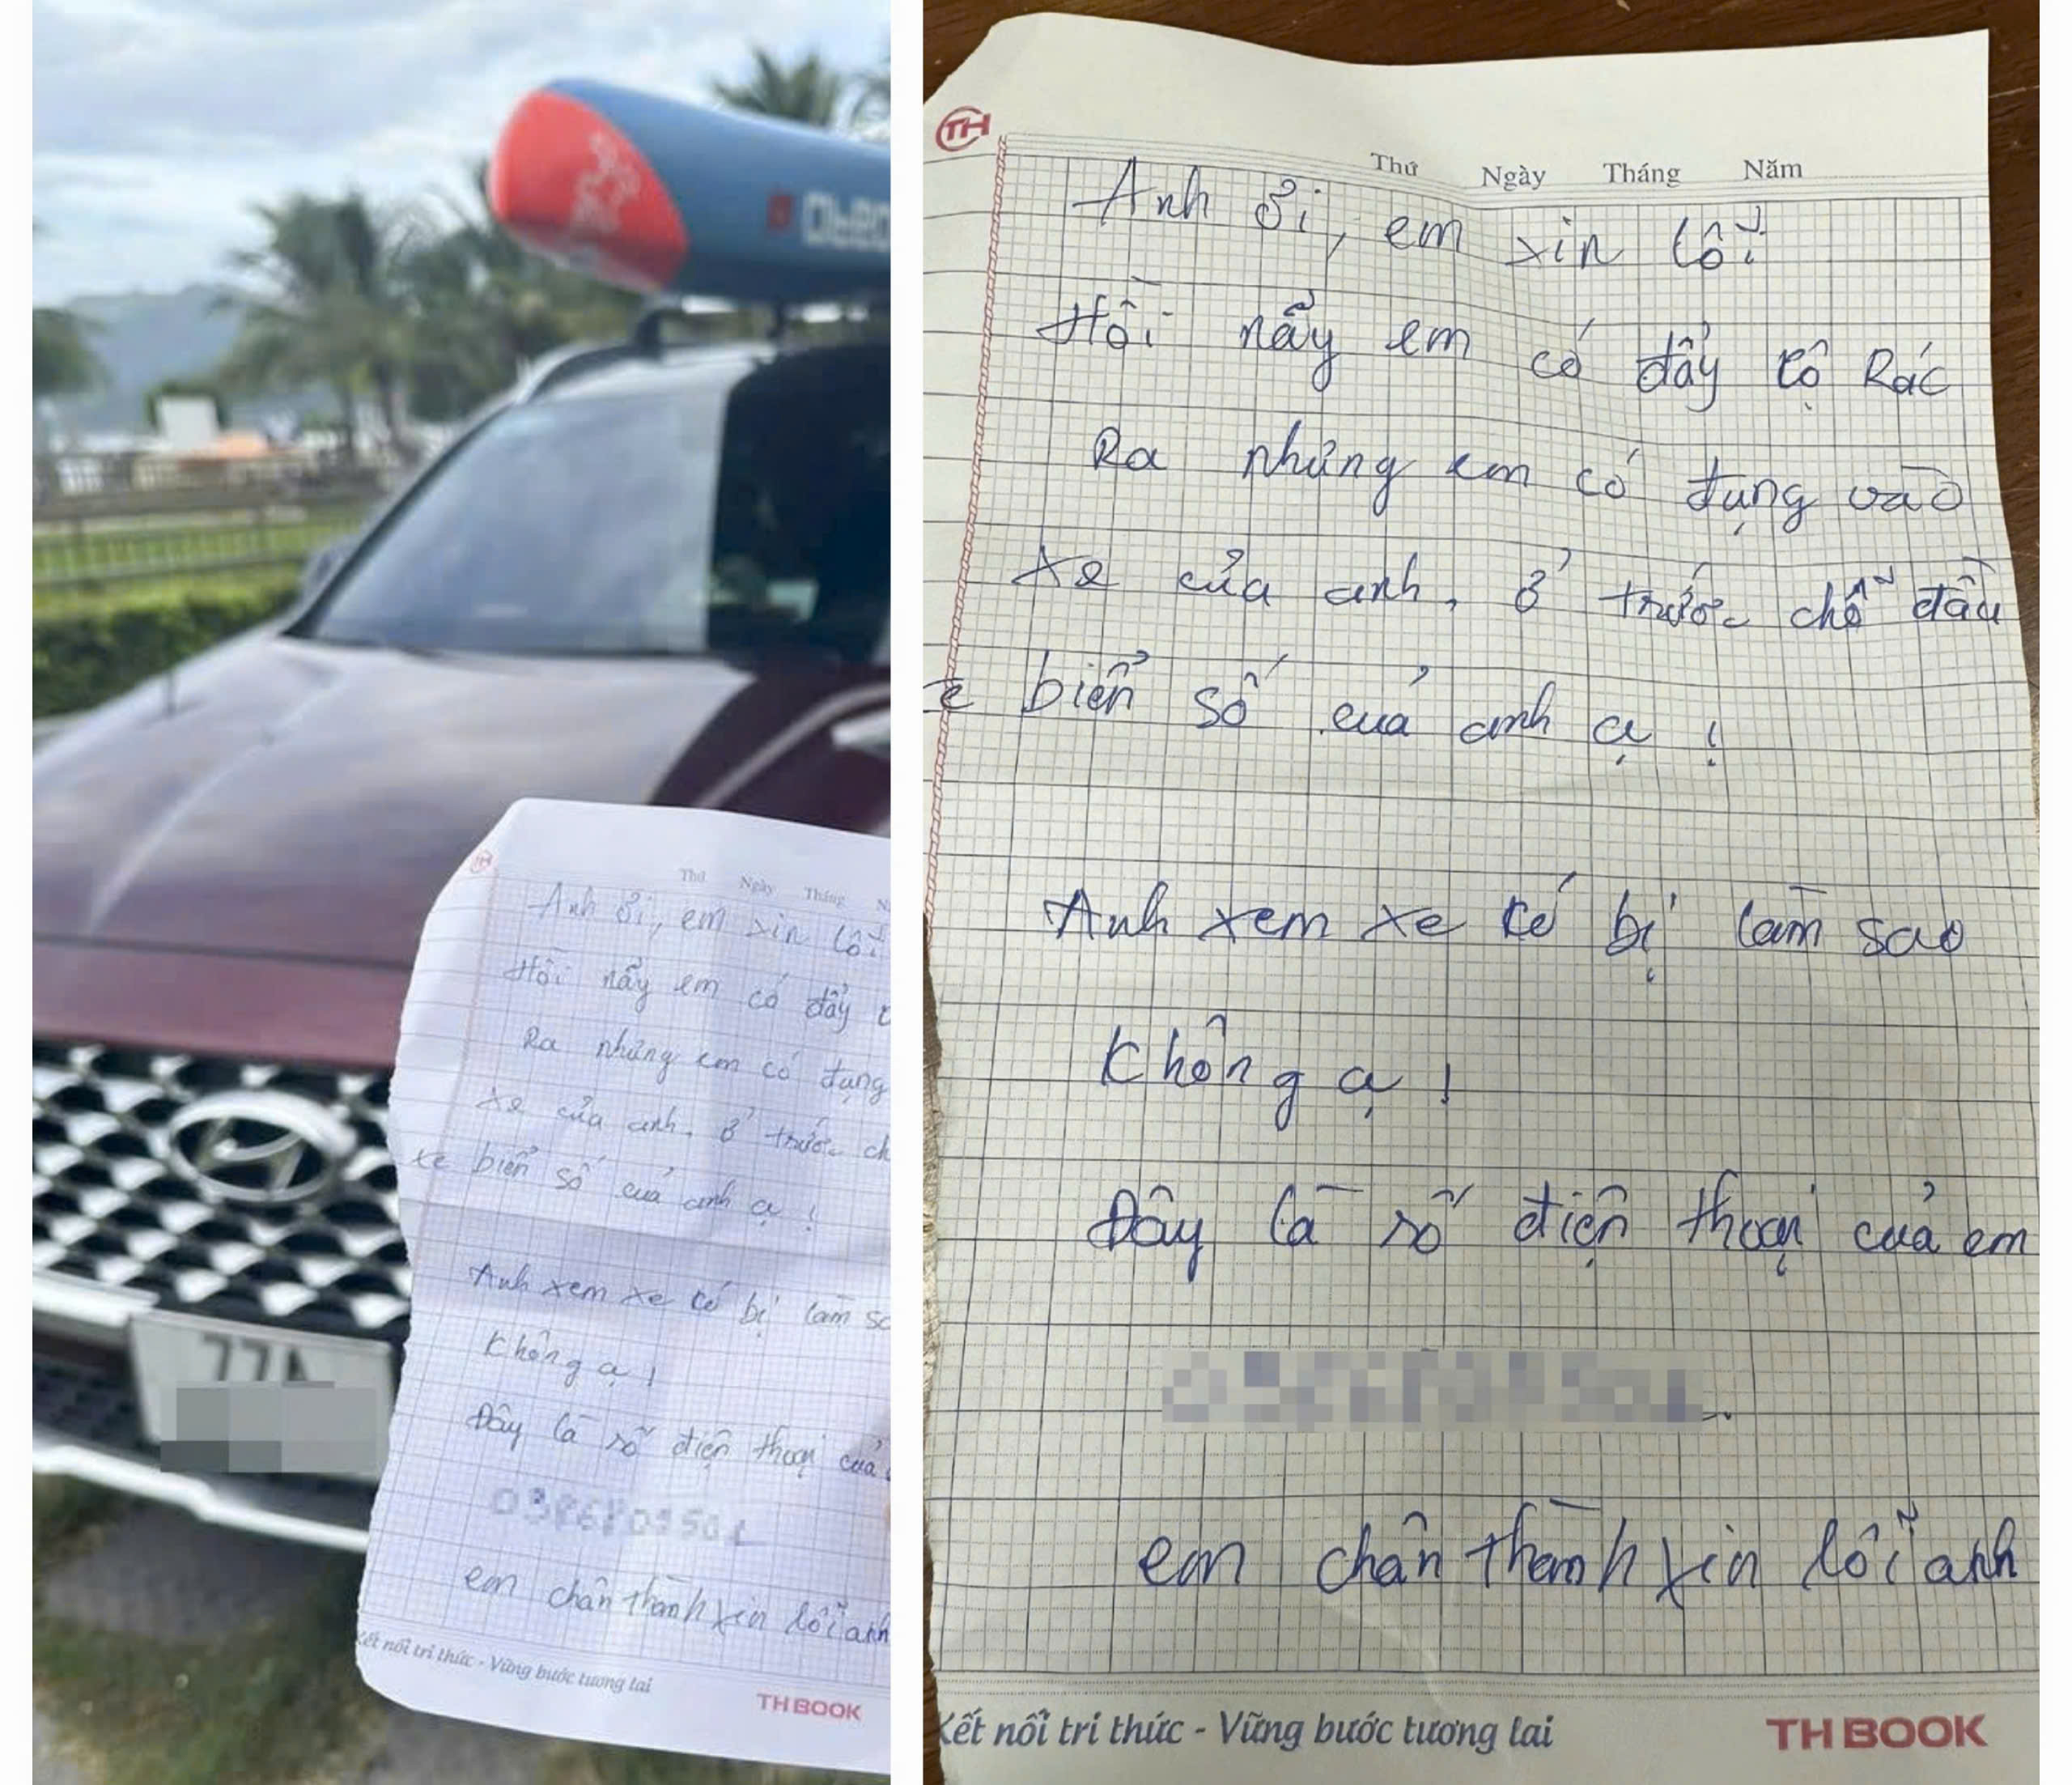 OBRO
77A
TH
Thứ Ngày Tháng
Anh ởi, em xin lỗi
Hồi nãy em có đẩy
Ra nhưng em có đụng
xe của anh. ở trước ch
xe biển số của anh ạ !
Anh xem xe có bị làm sa
Không ạ !
Đây là số điện thoại của
em chân thành xin lỗi anh
Kết nối tri thức - Vững bước tương lai
TH BOOK
TH
Thứ Ngày Tháng Năm
Anh ởi, em xin lỗi
Hồi nãy em có đẩy Rác
Ra nhưng em có đụng vào
xe của anh. ở trước chỗ đầu
biển số của anh ạ !
Anh xem xe có bị làm sao
Không ạ !
Đây là số điện thoại của em
em chân thành xin lỗi anh
Kết nối tri thức - Vững bước tương lai
TH BOOK